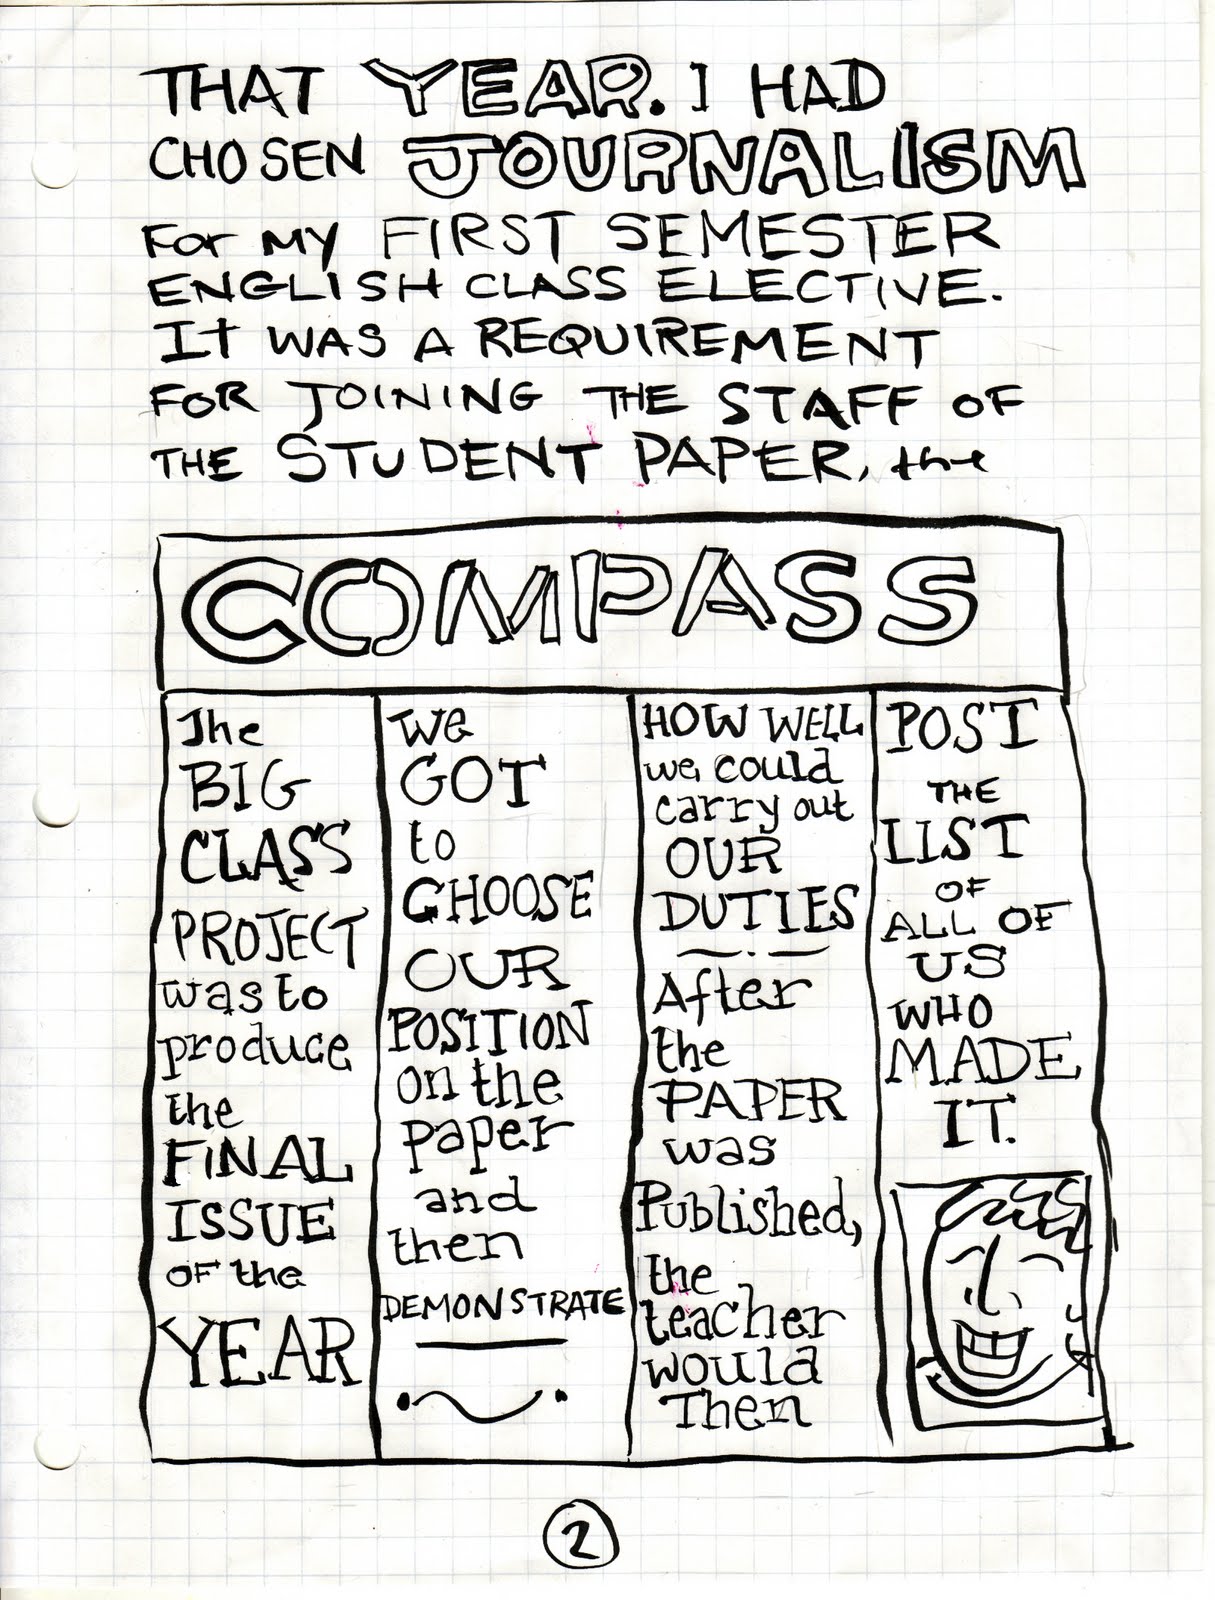 THAT YEAR. I HAD
CHOSEN JOURNALISM
For MY FIRST SEMESTER
ENGLISH CLASS ELECTIVE.
It WAS A REQUIREMENT
FOR JOINING THE STAFF OF
THE STUDENT PAPER, the
COMPASS
The
BIG
CLASS
PROJECT
was to
produce
the
FINAL
ISSUE
OF the
YEAR
we
GOT
to
CHOOSE
OUR
POSITION
on the
paper
and
then
DEMONSTRATE
HOW WELL
we could
carry out
OUR
DUTIES
After
the
PAPER
was
Published,
the
teacher
would
Then
POST
THE
LIST
OF
ALL OF
US
WHO
MADE
IT.
2